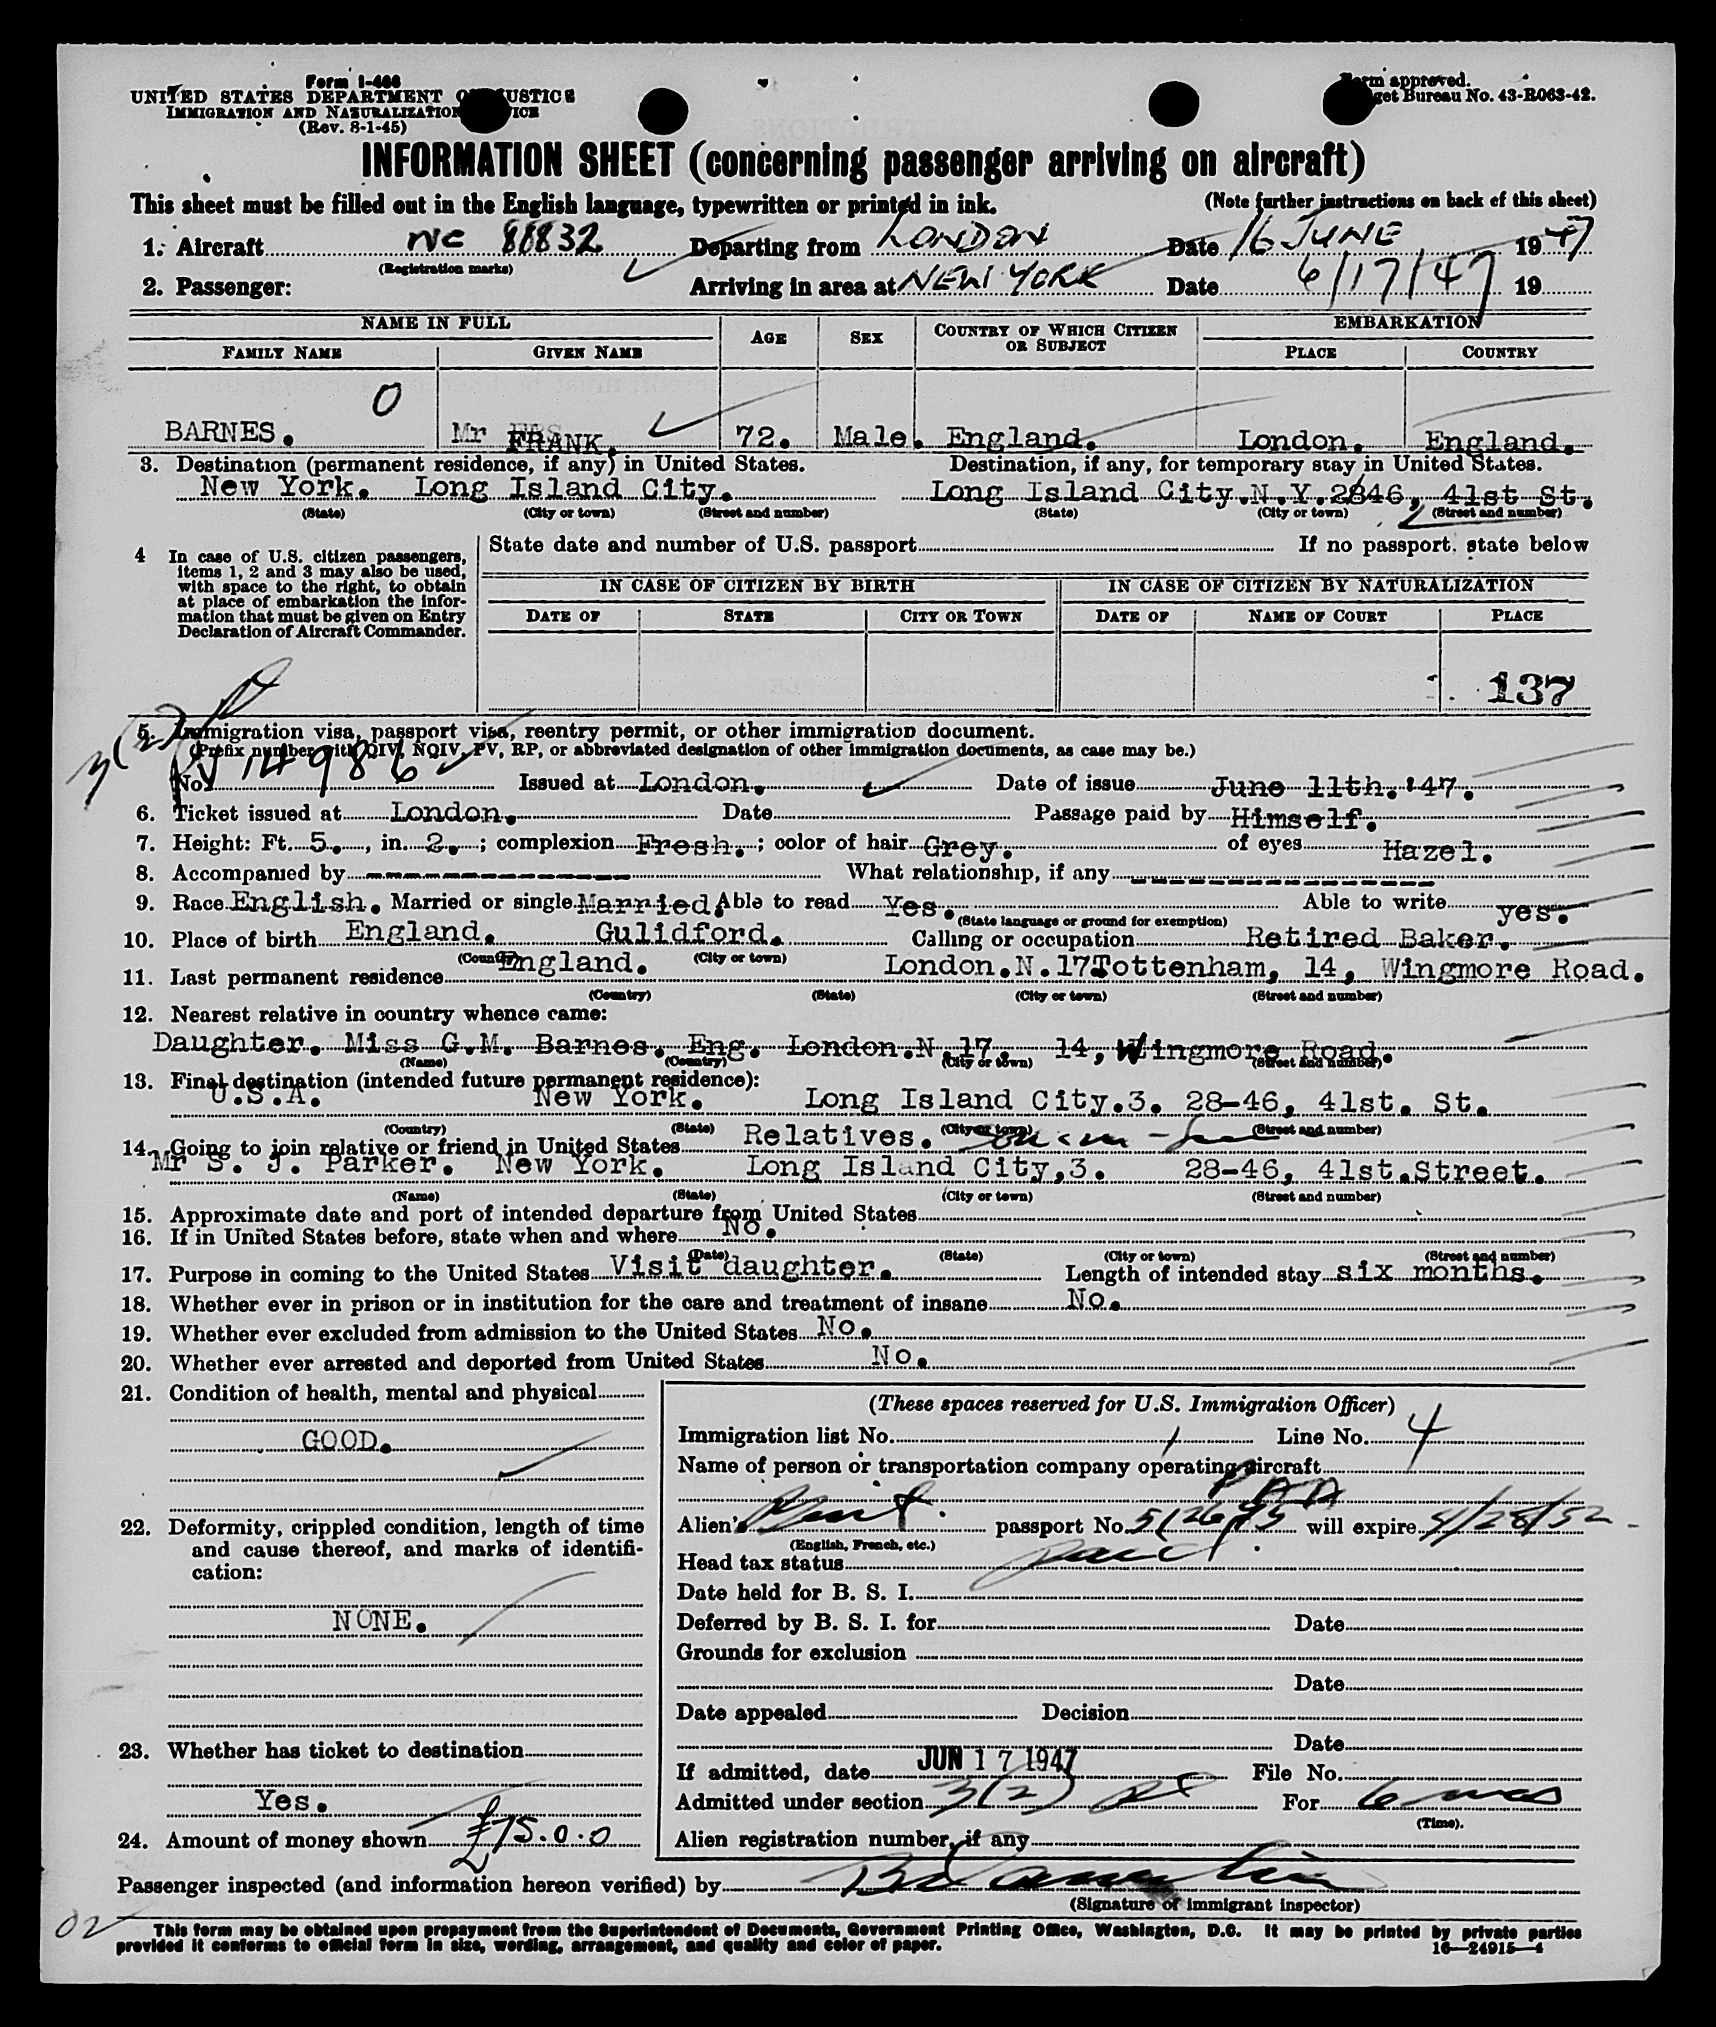 Form I-466
UNITED STATES DEPARTMENT OF JUSTICE
IMMIGRATION AND NATURALIZATION SERVICE
(Rev. 8-1-45)
Form approved.
Budget Bureau No. 43-R063-42.
INFORMATION SHEET (concerning passenger arriving on aircraft)
This sheet must be filled out in the English language, typewritten or printed in ink. (Note further instructions on back of this sheet)
1. Aircraft NC 88832 Departing from LONDON Date 16 JUNE 1947
(Registration marks)
2. Passenger: Arriving in area at NEW YORK Date 6/17/47 19
NAME IN FULL AGE SEX COUNTRY OF WHICH CITIZEN OR SUBJECT EMBARKATION
FAMILY NAME GIVEN NAME PLACE COUNTRY
0
BARNES. Mr FRANK. 72. Male. England. London. England.
3. Destination (permanent residence, if any) in United States. Destination, if any, for temporary stay in United States.
New York. Long Island City. Long Island City.N.Y.2846, 41st St.
(State) (City or town) (Street and number) (State) (City or town) (Street and number)
4 In case of U.S. citizen passengers, items 1, 2 and 3 may also be used, with space to the right, to obtain at place of embarkation the information that must be given on Entry Declaration of Aircraft Commander.
State date and number of U.S. passport If no passport, state below
IN CASE OF CITIZEN BY BIRTH IN CASE OF CITIZEN BY NATURALIZATION
DATE OF STATE CITY OR TOWN DATE OF NAME OF COURT PLACE
137
3(2)
5. Immigration visa, passport visa, reentry permit, or other immigration document.
(Prefix number with QIV, NQIV, PV, RP, or abbreviated designation of other immigration documents, as case may be.)
No. V 14986 Issued at London. Date of issue June 11th. '47.
6. Ticket issued at London. Date Passage paid by Himself.
7. Height: Ft. 5. , in. 2. ; complexion Fresh. ; color of hair Grey. of eyes Hazel.
8. Accompanied by ---------------- What relationship, if any ----------------
9. Race English. Married or single Married. Able to read Yes. Able to write yes.
(State language or ground for exemption)
10. Place of birth England. Gulidford. Calling or occupation Retired Baker.
(Country) (City or town)
11. Last permanent residence England. London.N.17.Tottenham, 14, Wingmore Road.
(Country) (State) (City or town) (Street and number)
12. Nearest relative in country whence came:
Daughter. Miss G.M. Barnes. Eng. London.N.17. 14, Wingmore Road.
(Name) (Country) (City or town) (Street and number)
13. Final destination (intended future permanent residence):
U.S.A. New York. Long Island City.3. 28-46, 41st. St.
(Country) (State) (City or town) (Street and number)
14. Going to join relative or friend in United States Relatives. Son-in-law
Mr S. J. Parker. New York. Long Island City,3. 28-46, 41st.Street.
(Name) (State) (City or town) (Street and number)
15. Approximate date and port of intended departure from United States
16. If in United States before, state when and where No.
(Date) (State) (City or town) (Street and number)
17. Purpose in coming to the United States Visit daughter. Length of intended stay six months.
18. Whether ever in prison or in institution for the care and treatment of insane No.
19. Whether ever excluded from admission to the United States No.
20. Whether ever arrested and deported from United States No.
21. Condition of health, mental and physical
GOOD.
22. Deformity, crippled condition, length of time and cause thereof, and marks of identification:
NONE.
23. Whether has ticket to destination
Yes.
24. Amount of money shown £75.0.0
(These spaces reserved for U.S. Immigration Officer)
Immigration list No. 1 Line No. 4
Name of person or transportation company operating aircraft
PAA
Alien's Brit. passport No. will expire 4/28/52
(English, French, etc.)
Head tax status paid.
Date held for B. S. I.
Deferred by B. S. I. for Date
Grounds for exclusion
Date
Date appealed Decision
Date
If admitted, date JUN 17 1947 File No.
Admitted under section 3(2) For 6 mos
(Time).
Alien registration number, if any
Passenger inspected (and information hereon verified) by
(Signature of immigrant inspector)
02
This form may be obtained upon prepayment from the Superintendent of Documents, Government Printing Office, Washington, D.C. It may be printed by private parties
provided it conforms to official form in size, wording, arrangement, and quality and color of paper.
16—24915-4